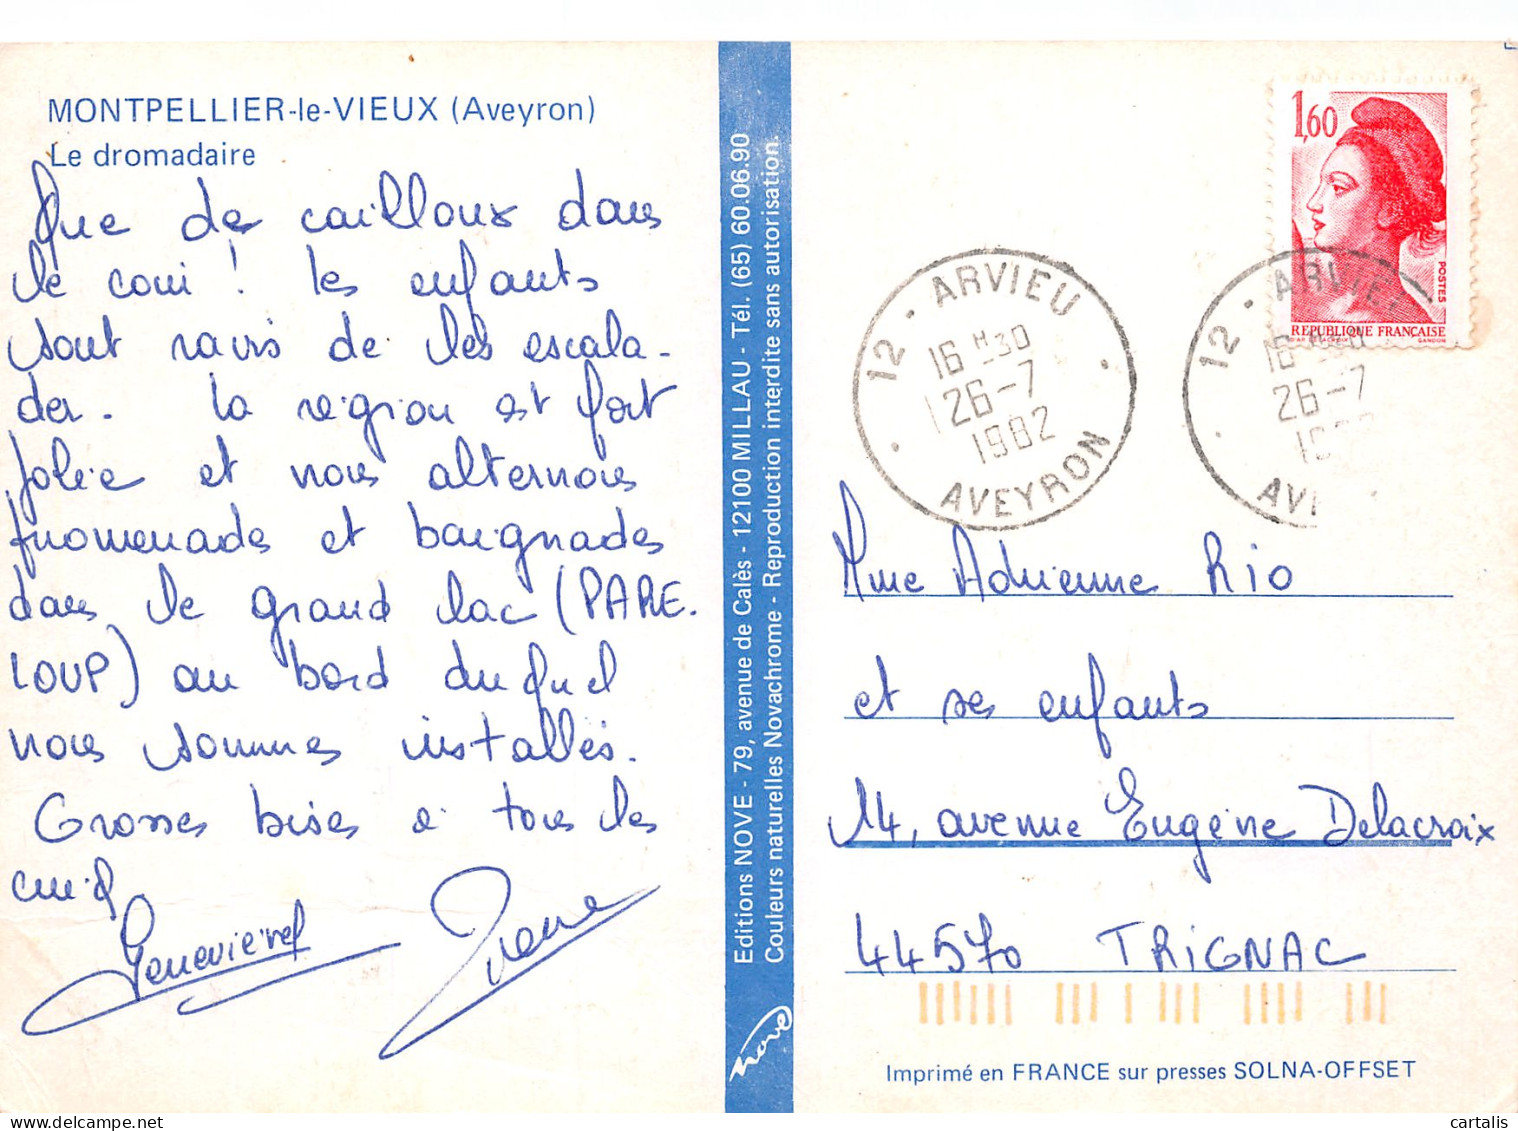 MONTPELLIER-le-VIEUX (Aveyron)
Le dromadaire
Que de cailloux dans
le coin ! Les enfants
sont ravis de les escala-
der. La région est fort
jolie et nous alternons
promenades et baignades
dans le grand lac (PARE.
LOUP) au bord duquel
nous sommes installés.
Grosses bises à tous les
Geneviève
Editions NOVE - 79, avenue de Calès - 12100 MILLAU - Tél. (65) 60.06.90
Couleurs naturelles Novachrome - Reproduction interdite sans autorisation.
nove
1,60
POSTES
REPUBLIQUE FRANÇAISE
D'AP. DELACROIX GANDON
12 - ARVIEU
16 H 30
26-7
1982
AVEYRON
12 - ARVIEU
26-7
Mme Adrienne Rio
et ses enfants
14, avenue Eugène Delacroix
44570 TRIGNAC
Imprimé en FRANCE sur presses SOLNA-OFFSET
cartalis